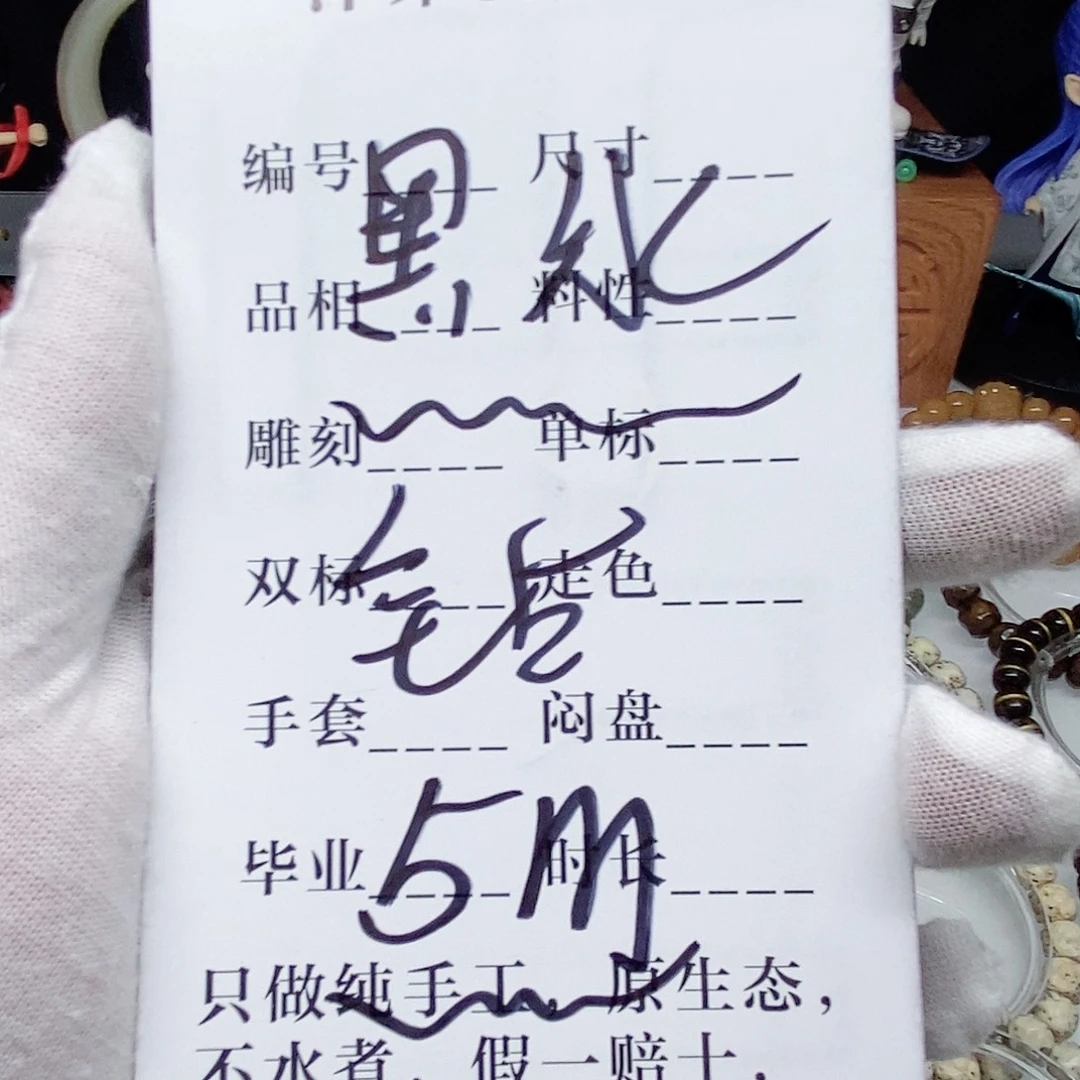 编号____ 尺寸____
黑化
品相____ 料性____
雕刻____ 单标____
双标____ 走色____
手套____ 闷盘____
毕业____ 时长____
5
只做纯手工，原生态，
不水煮，假一赔十，